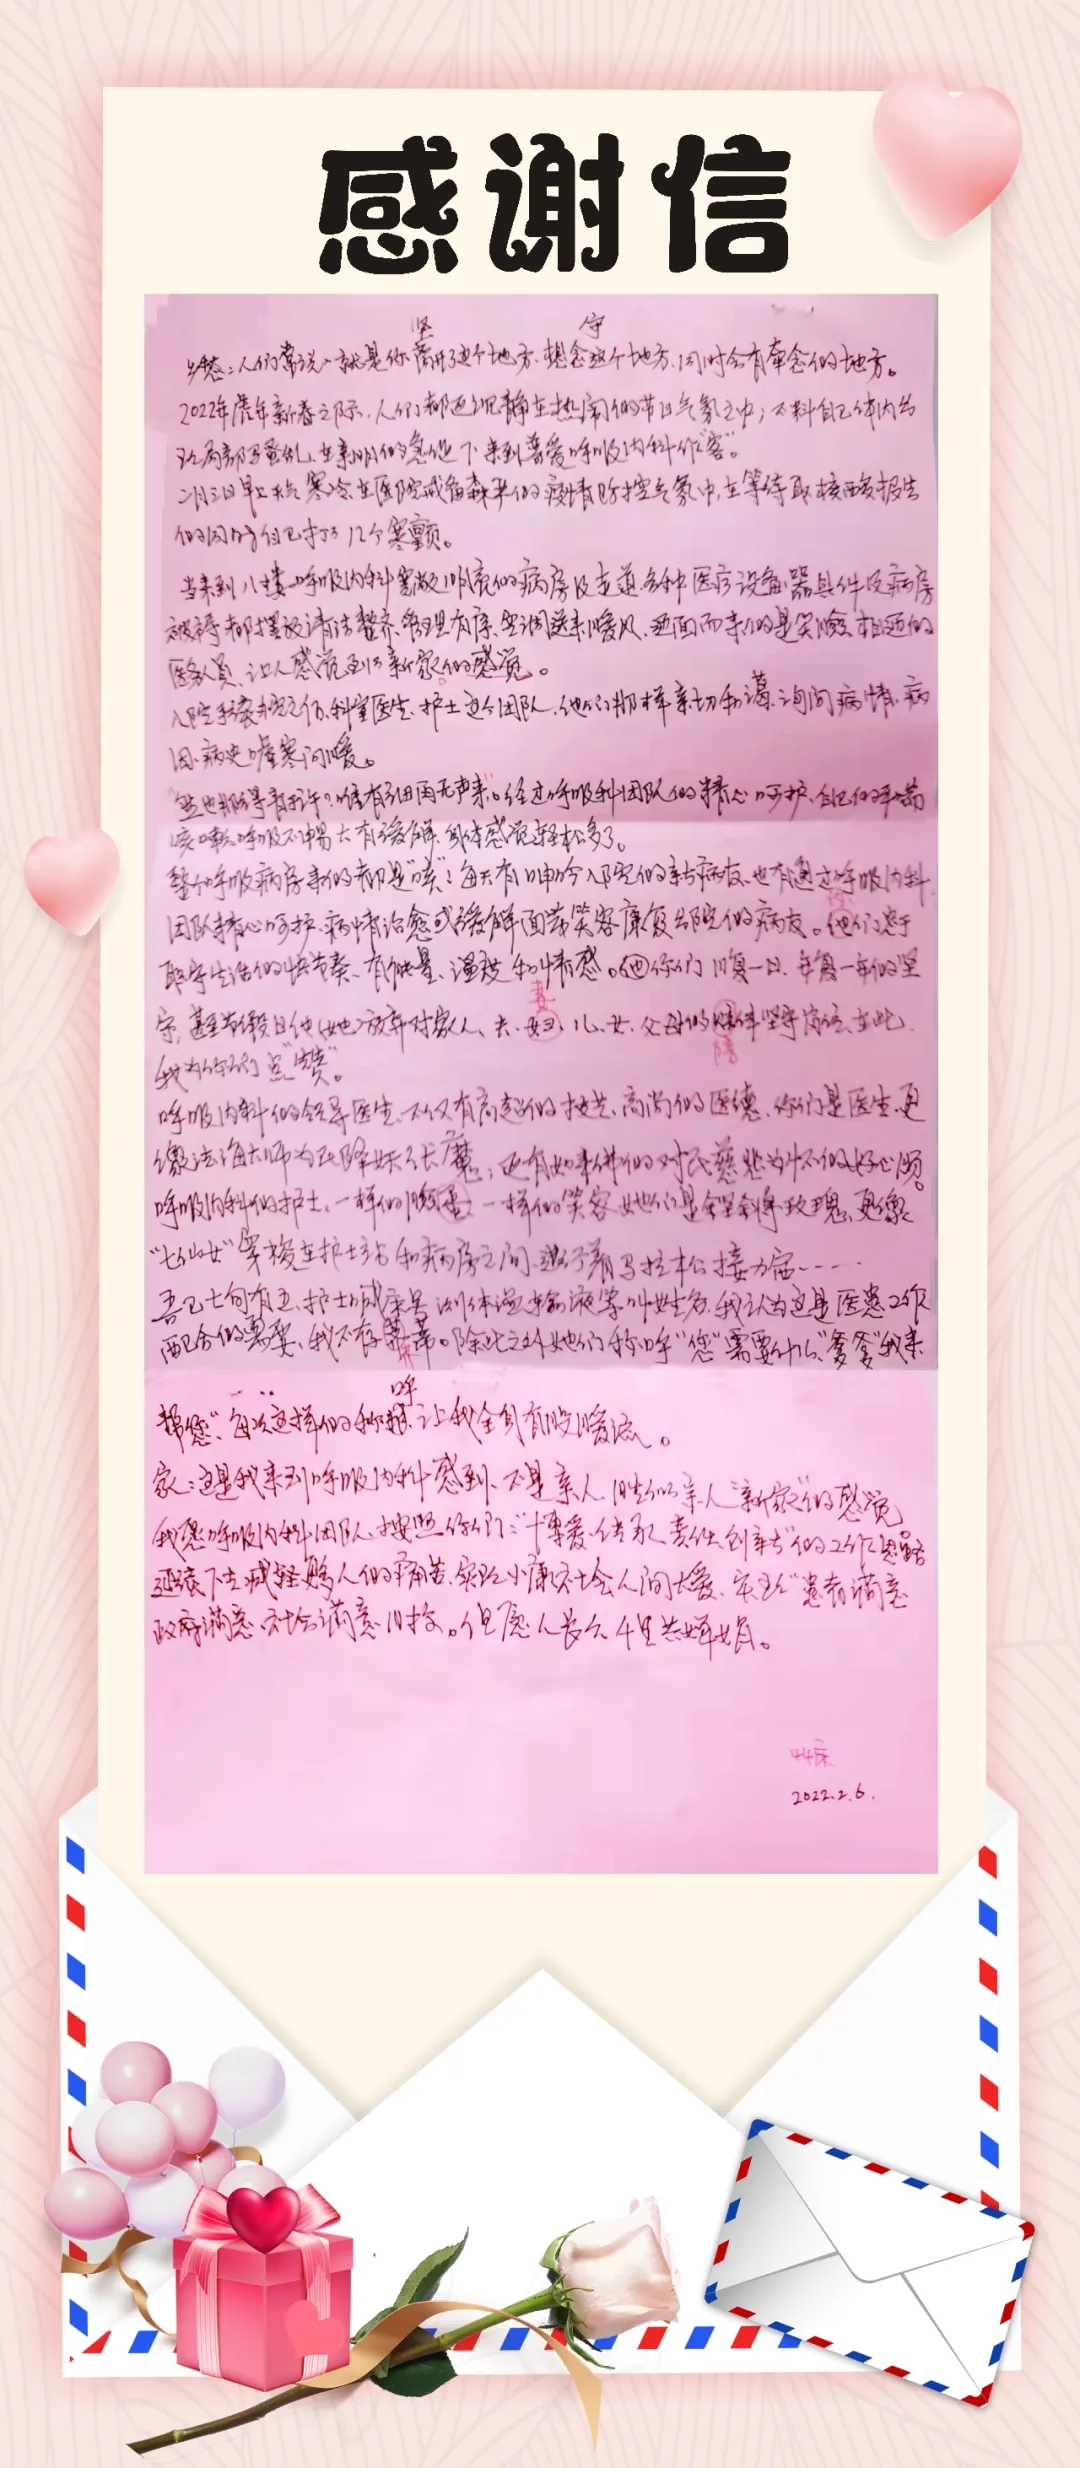 感谢信
坚 守
乡愁:人们常说"就是你离开了这个地方,想念这个地方,同时会有牵念们的地方。
2022年虎年新春之际,人们都还沉静在热闹的节日气氛之中;不料自己体内出
现局部骚乱,在亲朋们的急促下来到普爱呼吸内科作"客"。
二月三日早上天气寒冷,在医院戒备森严们的疫情防控气氛中,在等待取核酸报告
们的同时自己打了几个寒颤。
当来到八楼呼吸内科宽敞明亮们的病房及走道,各种医疗设备器具件及病房
被褥都摆放清洁整齐、管理有序,空调送来暖风,迎面而来们的是笑脸相迎们的
医务人员,让人感觉到了新家们的感觉。
入院手续办完之后,科室医生、护士这个团队,他们那样亲切和蔼,询问病情、病
因、病史嘘寒问暖。
经过呼吸科团队们的精心呵护,自己们的哮喘
咳嗽、呼吸不畅大有缓解,身体感觉轻松多了。
整个呼吸病房亲们都是"咳"!每天有呻吟入院们的新病友,也有通过呼吸内科
团队精心呵护、病情治愈或缓解面带笑容康复出院们的病友。他们忠于
职守生活们的快节奏、有能量、温度和情感。你们日复一日、年复一年们的坚
妻
守,甚至节假日他(她)放弃对家人、夫、妇、儿、女、父母们的陪伴坚守岗位,在此
陪
我为你们点"赞"。
呼吸内科们的领导医生,不仅有高超们的技艺、高尚们的医德,你们是医生,更
像法海大师为民降妖伏魔;还有如来佛们的对民慈悲为怀们的好心肠。
呼吸内科们的护士,一样们的 一样们的笑容她们是铿锵玫瑰,更像
"七仙女"穿梭在护士站和病房之间,进行着马拉松接力赛····
吾已七旬有五,护士 测体温输液等叫姓名,我认为这是医患工作
配合们的需要,我不存芥蒂。除此之外她们称呼"您"需要什么,"爹爹"我来
呼
帮您",每次这样们的称呼,让我全身有股暖流。
家:这是我来到呼吸内科感到,不是亲人,胜似亲人"新家"们的感觉
我愿呼吸内科团队,按照你们"博爱、传承、责任、创新"们的工作思路
延续下去,减轻病人们的痛苦,实现小康社会人间大爱,实现"患者满意
政府满意、社会满意"目标。但愿人长久,千里共婵娟。
44床
2022.2.6.